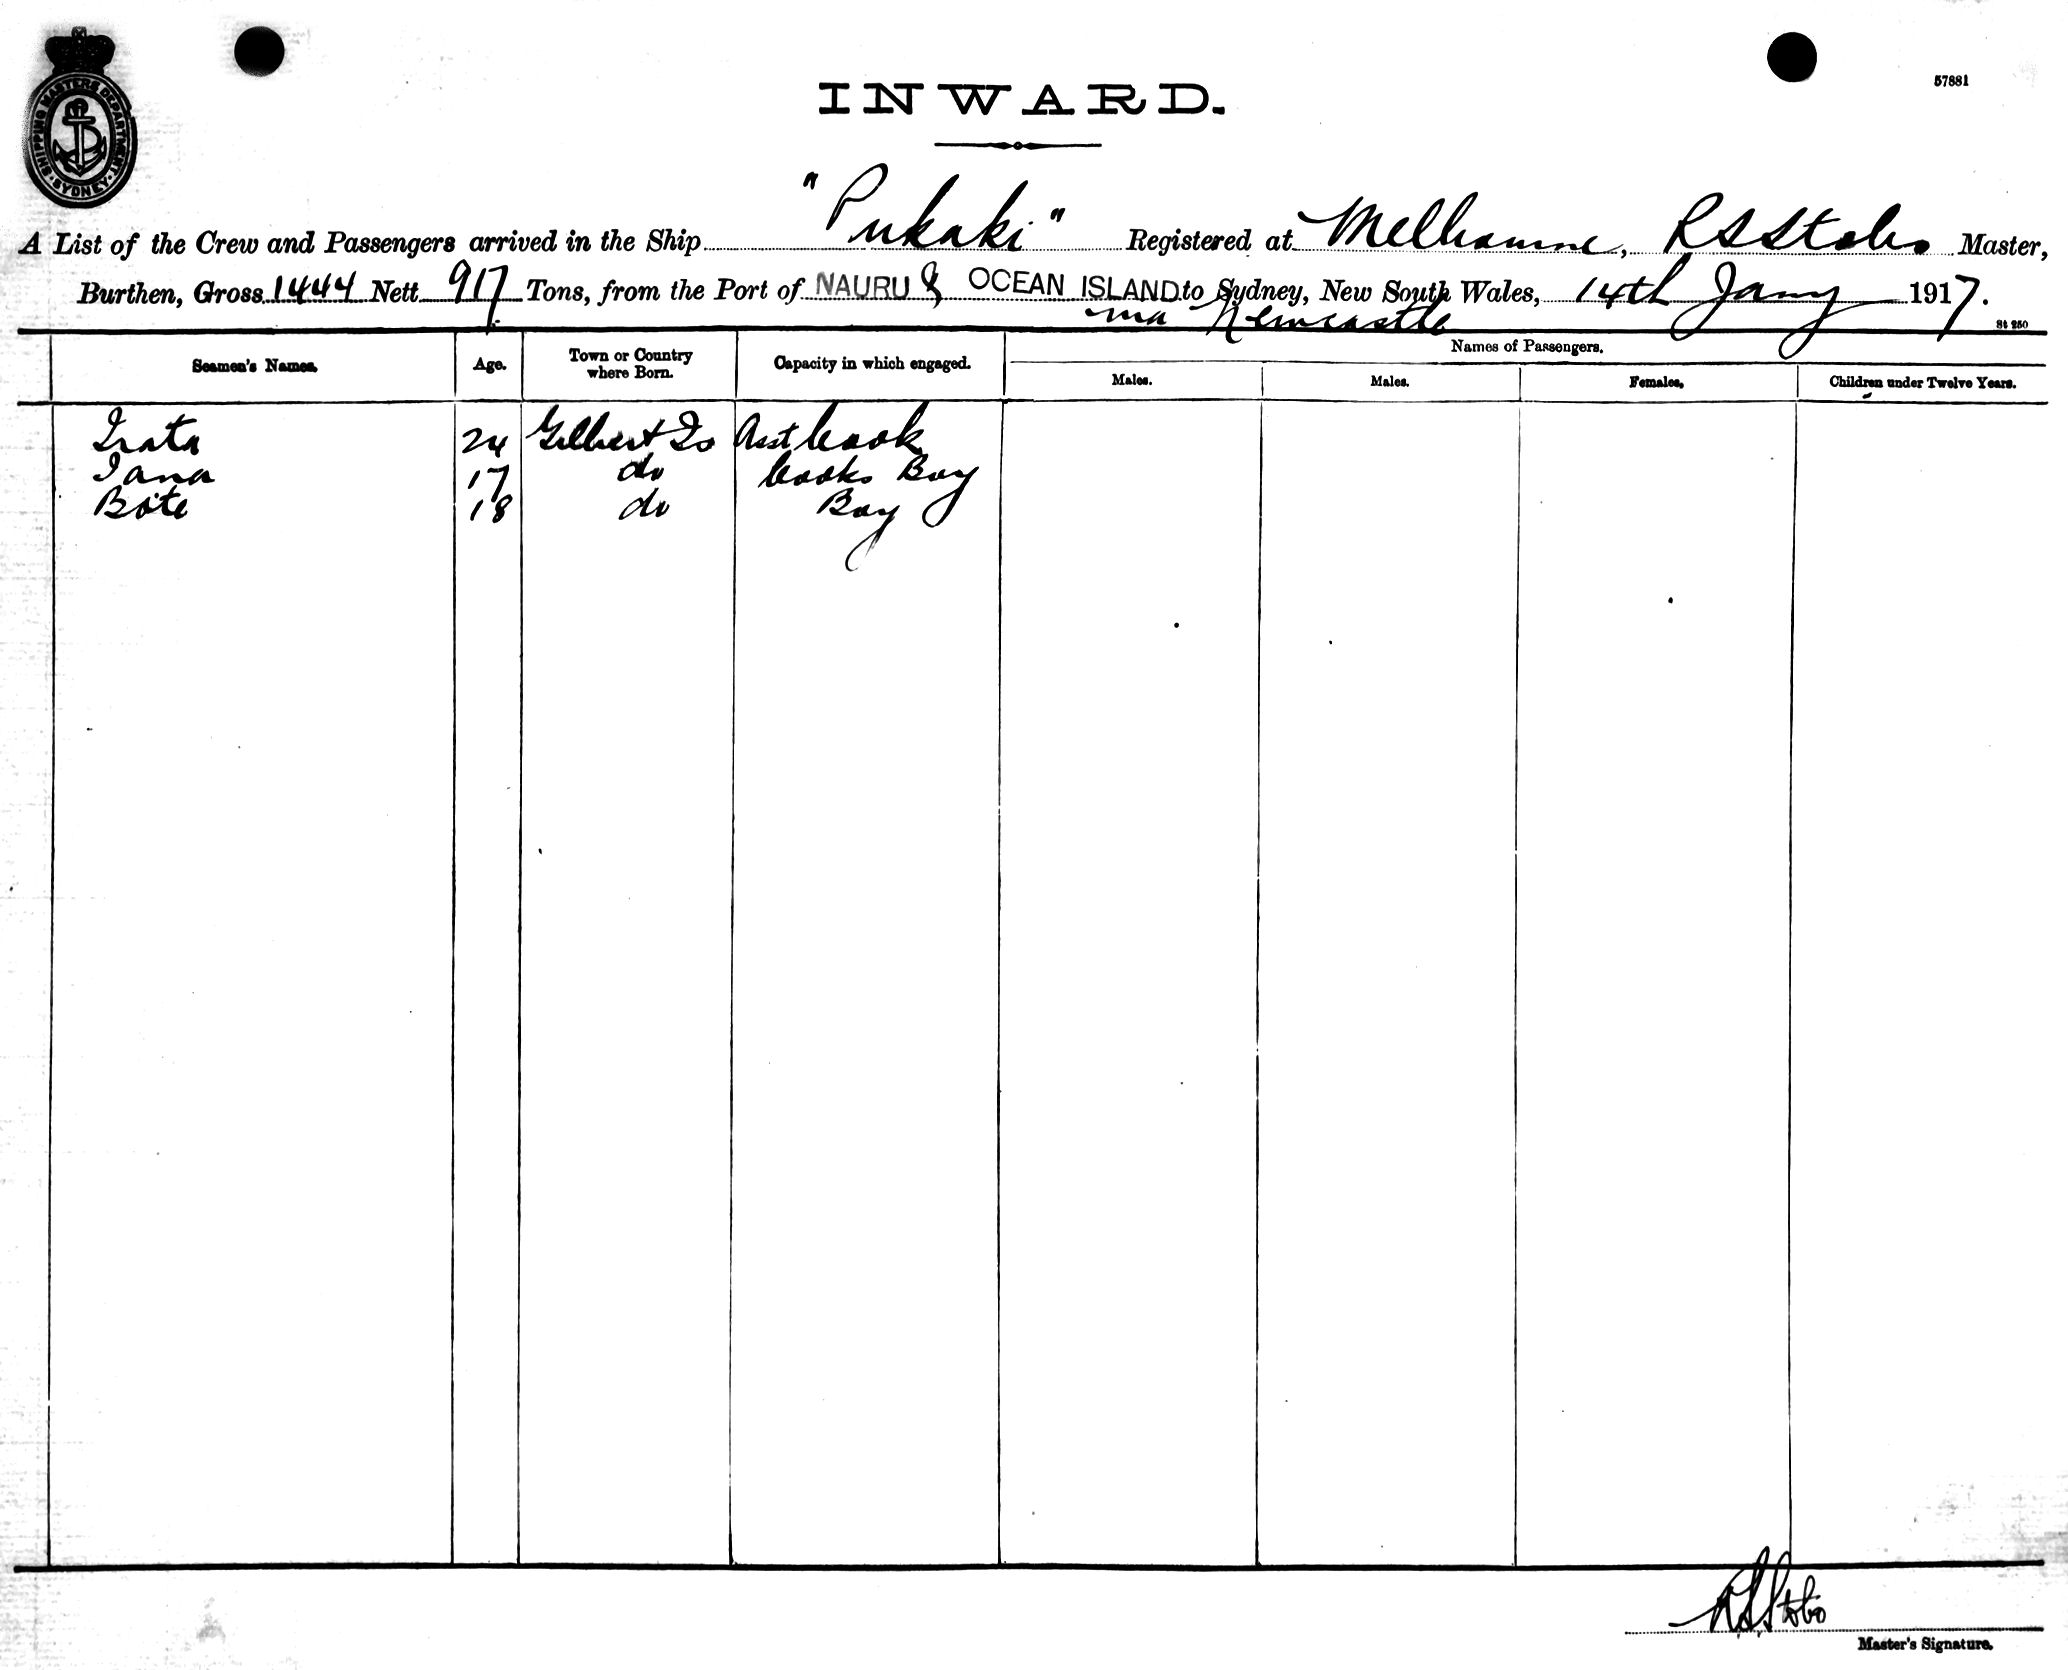 SHIPPING MASTERS DEPARTMENT
SYDNEY
INWARD.
57881
A List of the Crew and Passengers arrived in the Ship "Pukaki" Registered at Melbourne, R S Stobo Master,
Burthen, Gross 1444 Nett 917 Tons, from the Port of NAURU & OCEAN ISLAND to Sydney, New South Wales, 14th Jany 1917.
via Newcastle
St 250
Seamen's Names. Age. Town or Country where Born. Capacity in which engaged. Names of Passengers.
Males. Males. Females. Children under Twelve Years.
Irata 24 Gilbert Is Asst Cook
Iana 17 do Cooks Boy
Bote 18 do Boy
R S Stobo
Master's Signature.